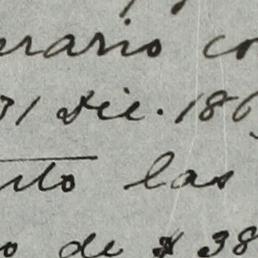 erario co
31 Dic. 186
rito las
o de $ 38